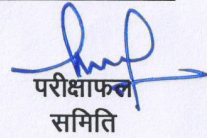 परीक्षाफल
समिति